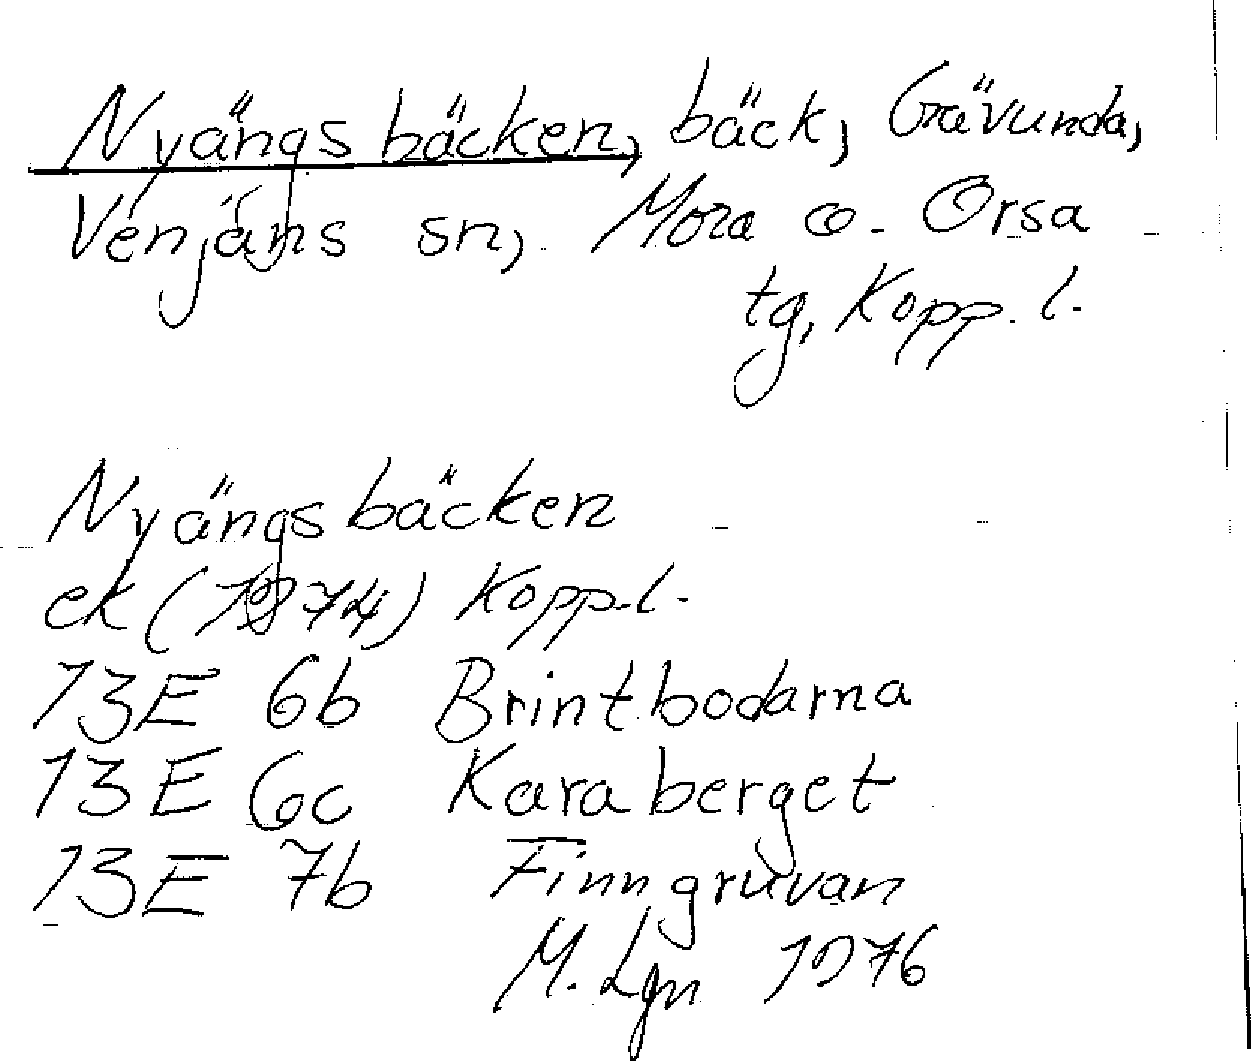 Nyängsbäcken, bäck, Gävunda,
Venjans sn, Mora o. Orsa
tg, Kopp. l.
Nyängsbäcken
ek (1974) Kopp. l.
13E 6b Brintbodarna
13E 6c Karaberget
13E 7b Finngruvan
M. Lgn 1976